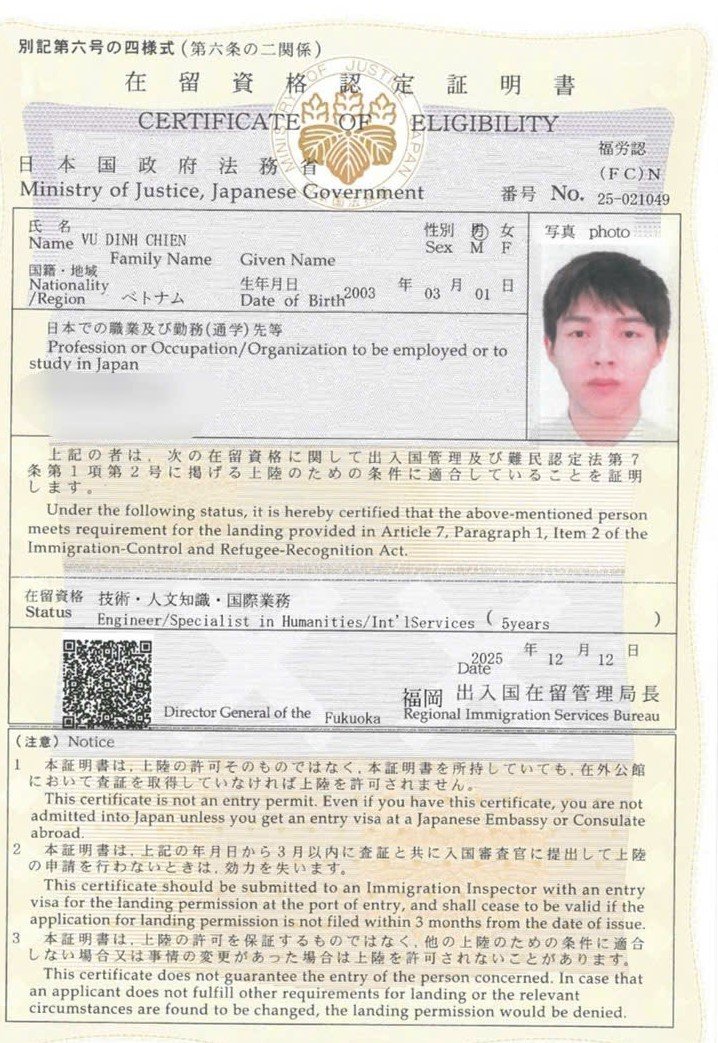 別記第六号の四様式 (第六条の二関係)
在留資格認定証明書
MINISTRY OF JUSTICE JAPAN
CERTIFICATE OF ELIGIBILITY
福労認
日本国政府法務省
(FC)N
Ministry of Justice, Japanese Government
番号 No. 25-021049
氏名 Name VU DINH CHIEN
Family Name Given Name
性別 男 女
Sex M F
写真 photo
国籍・地域
Nationality
/Region ベトナム
生年月日
Date of Birth 2003 年 03 月 01 日
日本での職業及び勤務(通学)先等
Profession or Occupation/Organization to be employed or to
study in Japan
上記の者は、次の在留資格に関して出入国管理及び難民認定法第7
条第1項第2号に掲げる上陸のための条件に適合していることを証明
します。
Under the following status, it is hereby certified that the above-mentioned person
meets requirement for the landing provided in Article 7, Paragraph 1, Item 2 of the
Immigration-Control and Refugee-Recognition Act.
在留資格 技術・人文知識・国際業務
Status Engineer/Specialist in Humanities/Int'lServices ( 5years )
2025 年 12 月 12 日
Date
福岡 出入国在留管理局長
Director General of the Fukuoka Regional Immigration Services Bureau
(注意) Notice
1 本証明書は、上陸の許可そのものではなく、本証明書を所持していても、在外公館
において査証を取得していなければ上陸を許可されません。
This certificate is not an entry permit. Even if you have this certificate, you are not
admitted into Japan unless you get an entry visa at a Japanese Embassy or Consulate
abroad.
2 本証明書は、上記の年月日から3月以内に査証と共に入国審査官に提出して上陸
の申請を行わないときは、効力を失います。
This certificate should be submitted to an Immigration Inspector with an entry
visa for the landing permission at the port of entry, and shall cease to be valid if the
application for landing permission is not filed within 3 months from the date of issue.
3 本証明書は、上陸の許可を保証するものではなく、他の上陸のための条件に適合
しない場合又は事情の変更があった場合は上陸を許可されないことがあります。
This certificate does not guarantee the entry of the person concerned. In case that
an applicant does not fulfill other requirements for landing or the relevant
circumstances are found to be changed, the landing permission would be denied.